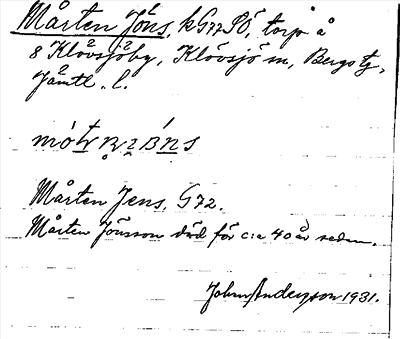 Mårten Jöns, k G77 SÖ, torp å
8 Klövsjöby, Klövsjö sn, Bergs tg,
Jämtl. l.
Mårten Jens. G72.
Mårten Jönsson död för c:a 40 år sedan.
John Anderson 1931.